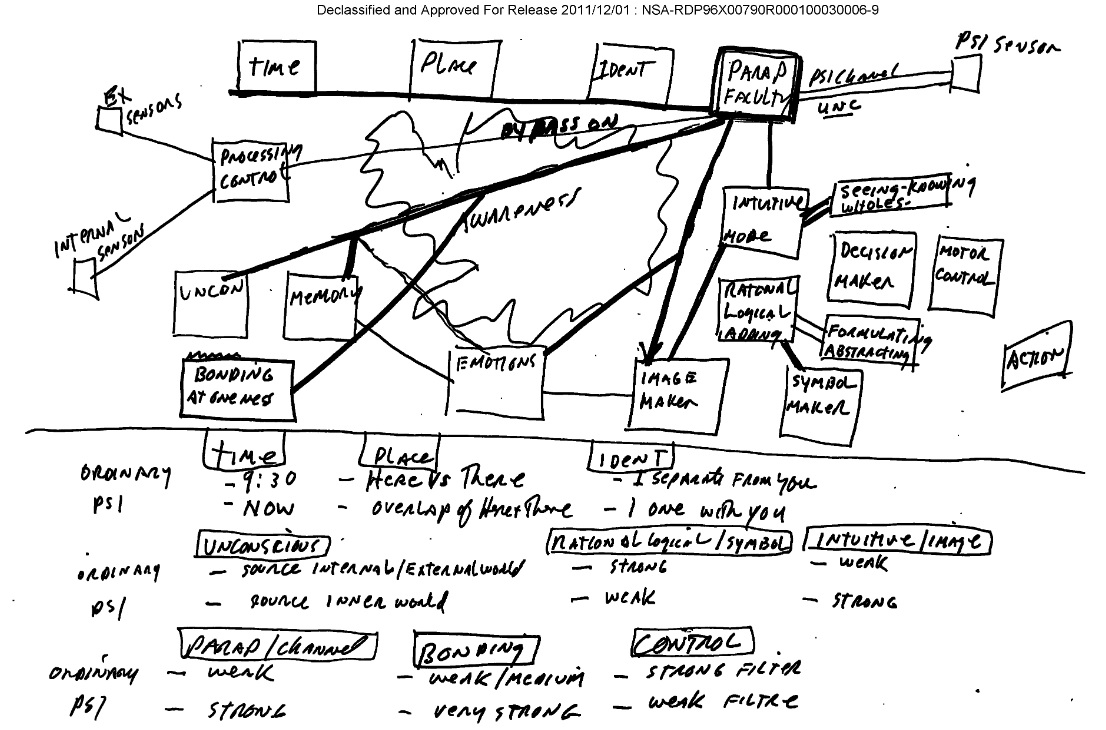 Declassified and Approved For Release 2011/12/01 : NSA-RDP96X00790R000100030006-9
TIME
PLACE
IDENT
PARAP
FACULTY
PSI CHANNEL
UNC
PSI SENSOR
EX
SENSORS
PROCESSING
CONTROL
BYPASS ON
AWARENESS
INTERNAL
SENSORS
UNCON
MEMORY
BONDING
AT ONENESS
EMOTIONS
IMAGE
MAKER
INTUITIVE
MODE
SEEING-KNOWING
WHOLES-
DECISION
MAKER
MOTOR
CONTROL
RATIONAL
LOGICAL
ADDING
FORMULATING
ABSTRACTING
SYMBOL
MAKER
ACTION
TIME PLACE IDENT
ORDINARY - 9:30 - HERE VS THERE - I SEPARATE FROM YOU
PSI - NOW - OVERLAP of Here+There - I ONE WITH YOU
UNCONSCIOUS RATIONAL Logical/SYMBOL INTUITIVE/IMAGE
ORDINARY - SOURCE INTERNAL/EXTERNAL WORLD - STRONG - WEAK
PSI - SOURCE INNER WORLD - WEAK - STRONG
PARAP/CHANNEL BONDING CONTROL
ORDINARY - WEAK - WEAK/MEDIUM - STRONG FILTER
PSI - STRONG - VERY STRONG - WEAK FILTRE